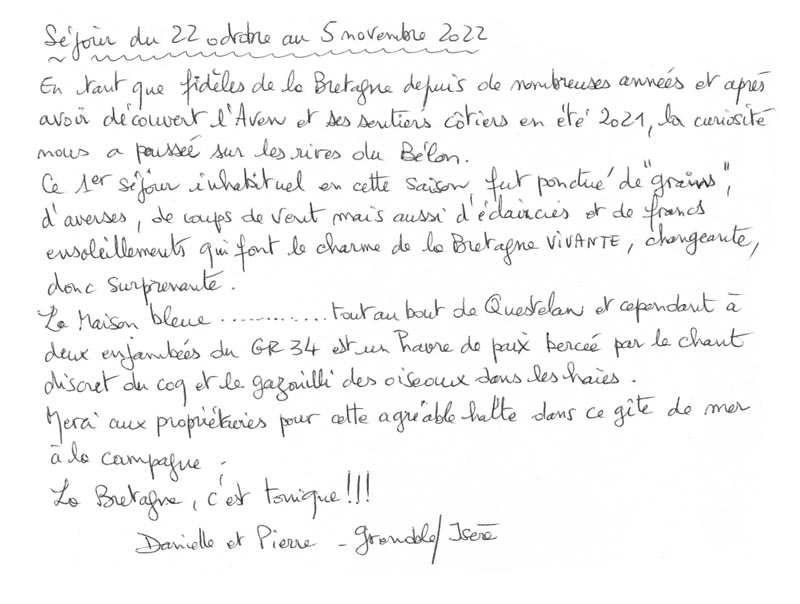 Séjour du 22 octobre au 5 novembre 2022
En tant que fidèles de la Bretagne depuis de nombreuses années et après
avoir découvert l'Aven et ses sentiers côtiers en été 2021, la curiosité
nous a poussée sur les rives du Bélon.
Ce 1er séjour inhabituel en cette saison fut ponctué de "grains",
d'averses, de coups de vent mais aussi d'éclaircies et de francs
ensoleillements qui font le charme de la Bretagne VIVANTE, changeante,
donc surprenante.
La Maison bleue ............. tout au bout de Questelan et cependant à
deux enjambées du GR 34 est un havre de paix bercée par le chant
discret du coq et le gazouilli des oiseaux dans les haies.
Merci aux propriétaires pour cette agréable halte dans ce gîte de mer
à la campagne.
La Bretagne, c'est tonique!!!
Danielle et Pierre - Grenoble/Isère